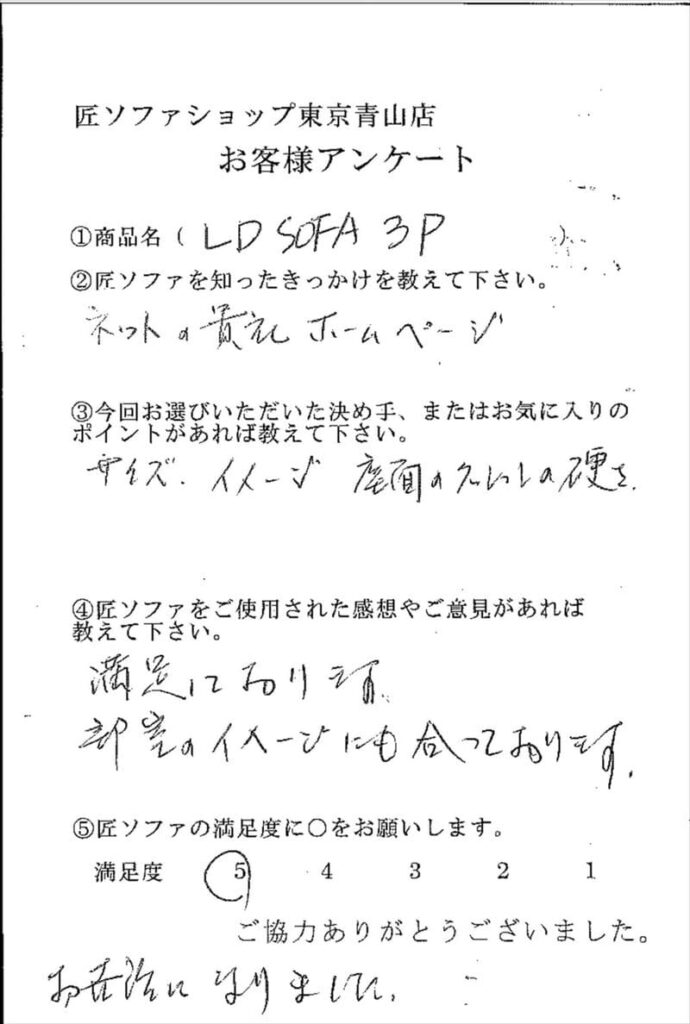 匠ソファショップ東京青山店
お客様アンケート
①商品名( LD SOFA 3P )
②匠ソファを知ったきっかけを教えて下さい。
ネットの貴社ホームページ
③今回お選びいただいた決め手、またはお気に入りの
ポイントがあれば教えて下さい。
サイズ、イメージ 座面のクッションの硬さ
④匠ソファをご使用された感想やご意見があれば
教えて下さい。
満足しております。
部室のイメージにも合っております。
⑤匠ソファの満足度に○をお願いします。
満足度 5 4 3 2 1
ご協力ありがとうございました。
お世話になりました。